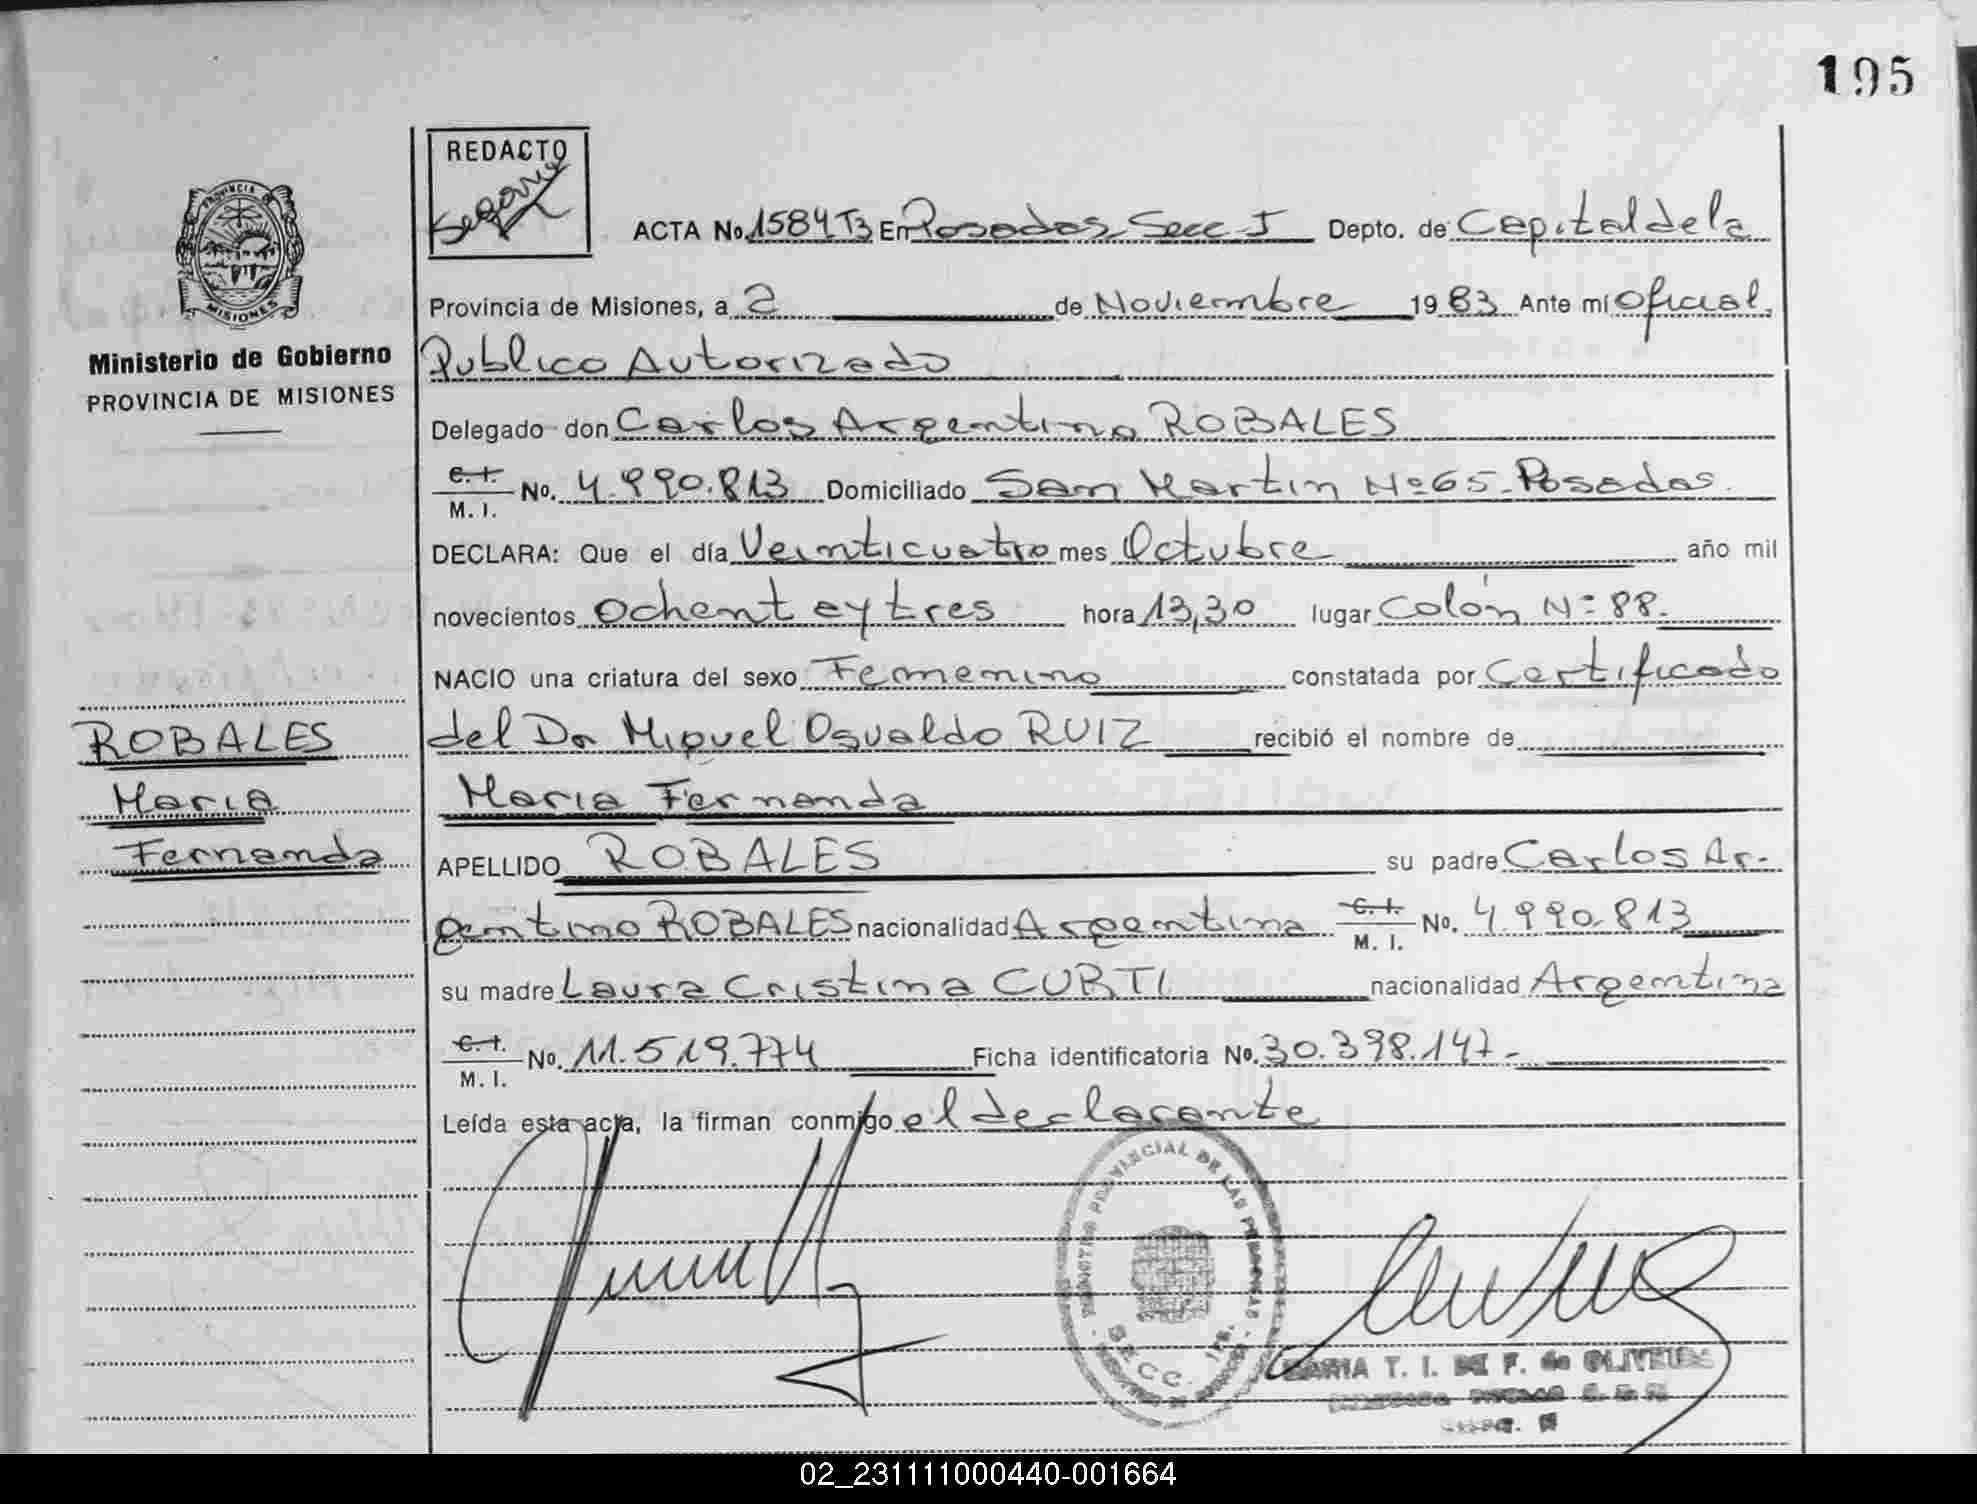 195
REDACTO
PROVINCIA DE
MISIONES
Ministerio de Gobierno
PROVINCIA DE MISIONES
ROBALES
Maria
Fernanda
ACTA No. 1584 T3 En Posadas Secc I Depto. de Capital de la
Provincia de Misiones, a 2 de Noviembre 1983 Ante mí Oficial
Publico Autorizado
Delegado don Carlos Argentino ROBALES
C. I. M. I. No. 4.990.813 Domiciliado San Martin Nº 65 - Posadas.
DECLARA: Que el día Veinticuatro mes Octubre año mil
novecientos Ochent ey tres hora 13,30 lugar Colón Nº 88.
NACIO una criatura del sexo Femenino constatada por Certificado
del Dr Miguel Osvaldo RUIZ recibió el nombre de
Maria Fernanda
APELLIDO ROBALES su padre Carlos Ar-
gentino ROBALES nacionalidad Argentina C. I. M. I. No. 4.990.813
su madre Laura Cristina CURTI nacionalidad Argentina
C. I. M. I. No. 11.519.774 Ficha identificatoria No. 30.398.147-
Leída esta acta, la firman conmigo el declarante
PROVINCIAL DE LAS PERSONAS
SECC.
MARIA T. I. F. de OLIVEIRA
02_231111000440-001664